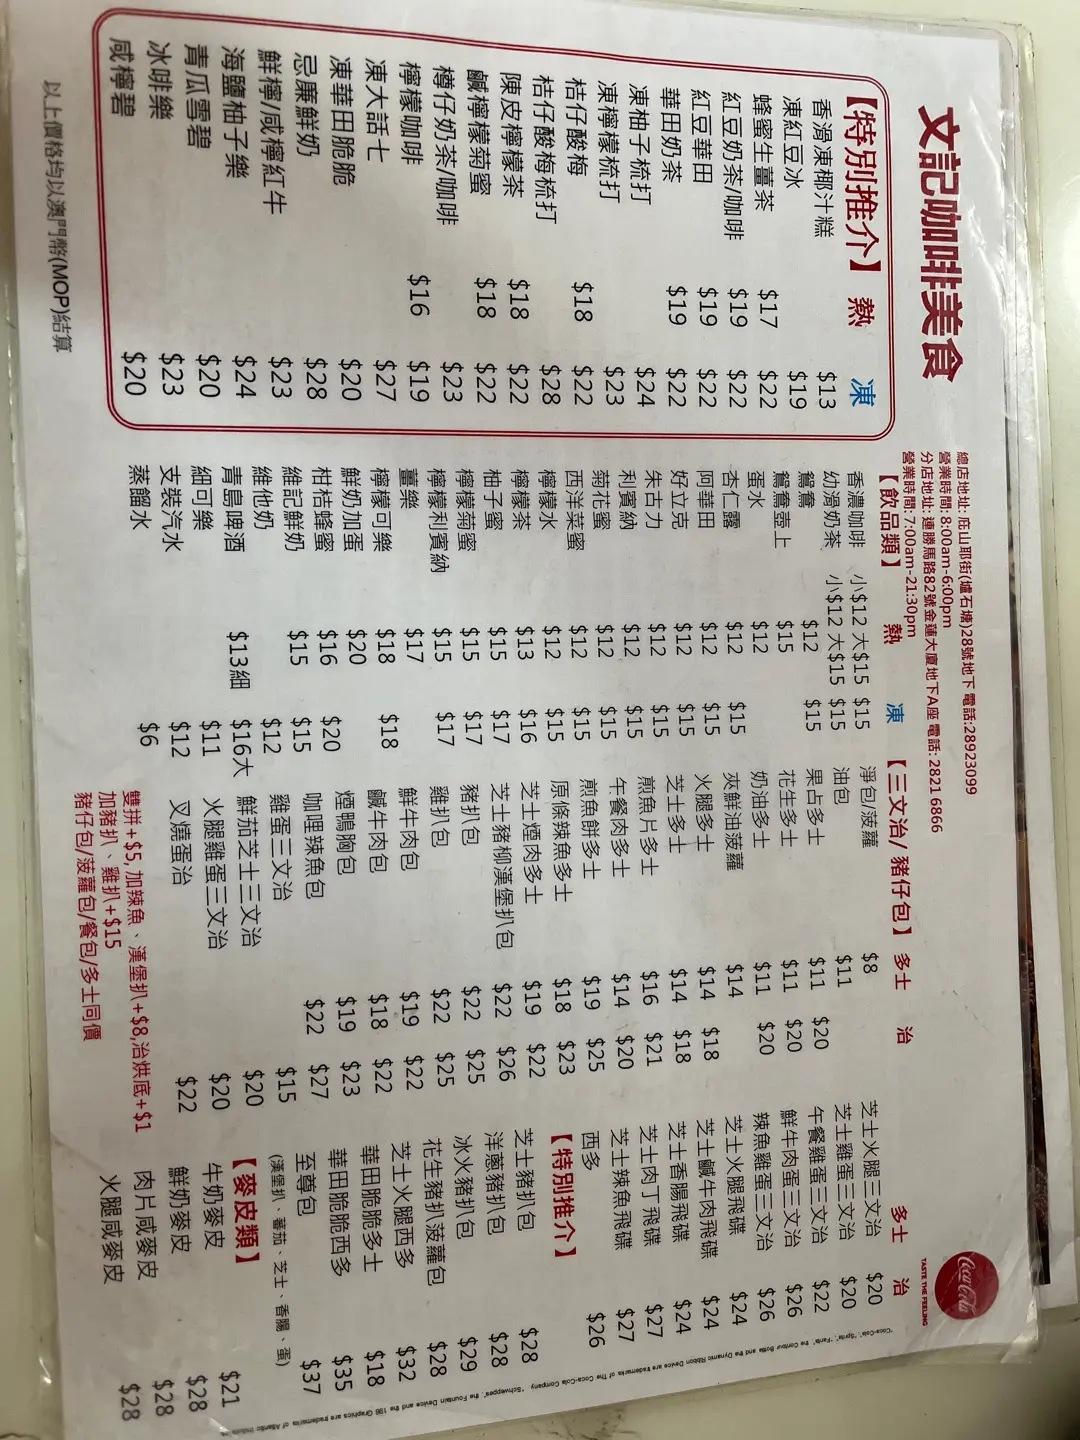 文記咖啡美食
總店地址: 庇山耶街(爐石塘)28號地下 電話:28923099
營業時間: 8:00am-6:00pm
分店地址: 連勝馬路82號金蓮大廈地下A座 電話: 2821 6866
營業時間: 7:00am-21:30pm
Coca-Cola
TASTE THE FEELING
【特別推介】 熱 凍
香滑凍椰汁糕 $13
凍紅豆冰 $19
蜂蜜生薑茶 $17 $22
紅豆奶茶/咖啡 $19 $22
紅豆華田 $19 $22
華田奶茶 $19 $22
凍柚子梳打 $24
凍檸檬梳打 $23
桔仔酸梅 $18 $22
桔仔酸梅梳打 $28
陳皮檸檬茶 $18 $22
鹹檸檬菊蜜 $18 $22
樽仔奶茶/咖啡 $23
檸檬咖啡 $16 $19
凍大話七 $27
凍華田脆脆 $20
忌廉鮮奶 $28
鮮檸/咸檸紅牛 $23
海鹽柚子樂 $24
青瓜雪碧 $20
冰啡樂 $23
咸檸碧 $20
以上價格均以澳門幣(MOP)結算
【飲品類】 熱 凍
香濃咖啡 小$12 大$15 $15
幼滑奶茶 小$12 大$15 $15
鴛鴦 $12 $15
鴛鴦壺上 $15
蛋水 $12
杏仁露 $12 $15
阿華田 $12 $15
好立克 $12 $15
朱古力 $12 $15
利賓納 $12 $15
菊花蜜 $12 $15
西洋菜蜜 $12 $15
檸檬水 $12 $15
檸檬茶 $13 $16
柚子蜜 $15 $17
檸檬菊蜜 $15 $17
檸檬利賓納 $15 $17
薑樂 $17
檸檬可樂 $18 $18
鮮奶加蛋 $20
柑桔蜂蜜 $16 $20
維記鮮奶 $15 $15
維他奶 $12
青島啤酒 $13細 $16大
細可樂 $11
支裝汽水 $12
蒸餾水 $6
【三文治/ 豬仔包】 多士 治
淨包/菠蘿 $8
油包 $11
果占多士 $11 $20
花生多士 $11 $20
奶油多士 $11 $20
夾鮮油菠蘿 $14
火腿多士 $14 $18
芝士多士 $14 $18
煎魚片多士 $16 $21
午餐肉多士 $14 $20
煎魚餅多士 $19 $25
原條辣魚多士 $18 $23
芝士煙肉多士 $19 $22
芝士豬柳漢堡扒包 $22 $26
豬扒包 $22 $25
雞扒包 $22 $25
鮮牛肉包 $19 $22
鹹牛肉包 $18 $22
煙鴨胸包 $19 $23
咖哩辣魚包 $22 $27
雞蛋三文治 $15
鮮茄芝士三文治 $20
火腿雞蛋三文治 $20
叉燒蛋治 $22
雙拼+$5,加辣魚、漢堡扒+$8,治烘底+$1
加豬扒、雞扒+$15
豬仔包/菠蘿包/餐包/多士同價
多士 治
芝士火腿三文治 $20
芝士雞蛋三文治 $20
午餐雞蛋三文治 $22
鮮牛肉蛋三文治 $26
辣魚雞蛋三文治 $26
芝士火腿飛碟 $24
芝士鹹牛肉飛碟 $24
芝士香腸飛碟 $24
芝士肉丁飛碟 $27
芝士辣魚飛碟 $27
西多 $26
【特別推介】
芝士豬扒包 $28
洋蔥豬扒包 $28
冰火豬扒包 $29
花生豬扒菠蘿包 $28
芝士火腿西多 $32
華田脆脆多士 $18
華田脆脆西多 $35
至尊包 $37
(漢堡扒、蕃茄、芝士、香腸、蛋)
【麥皮類】
牛奶麥皮 $21
鮮奶麥皮 $28
肉片咸麥皮 $28
火腿咸麥皮 $28